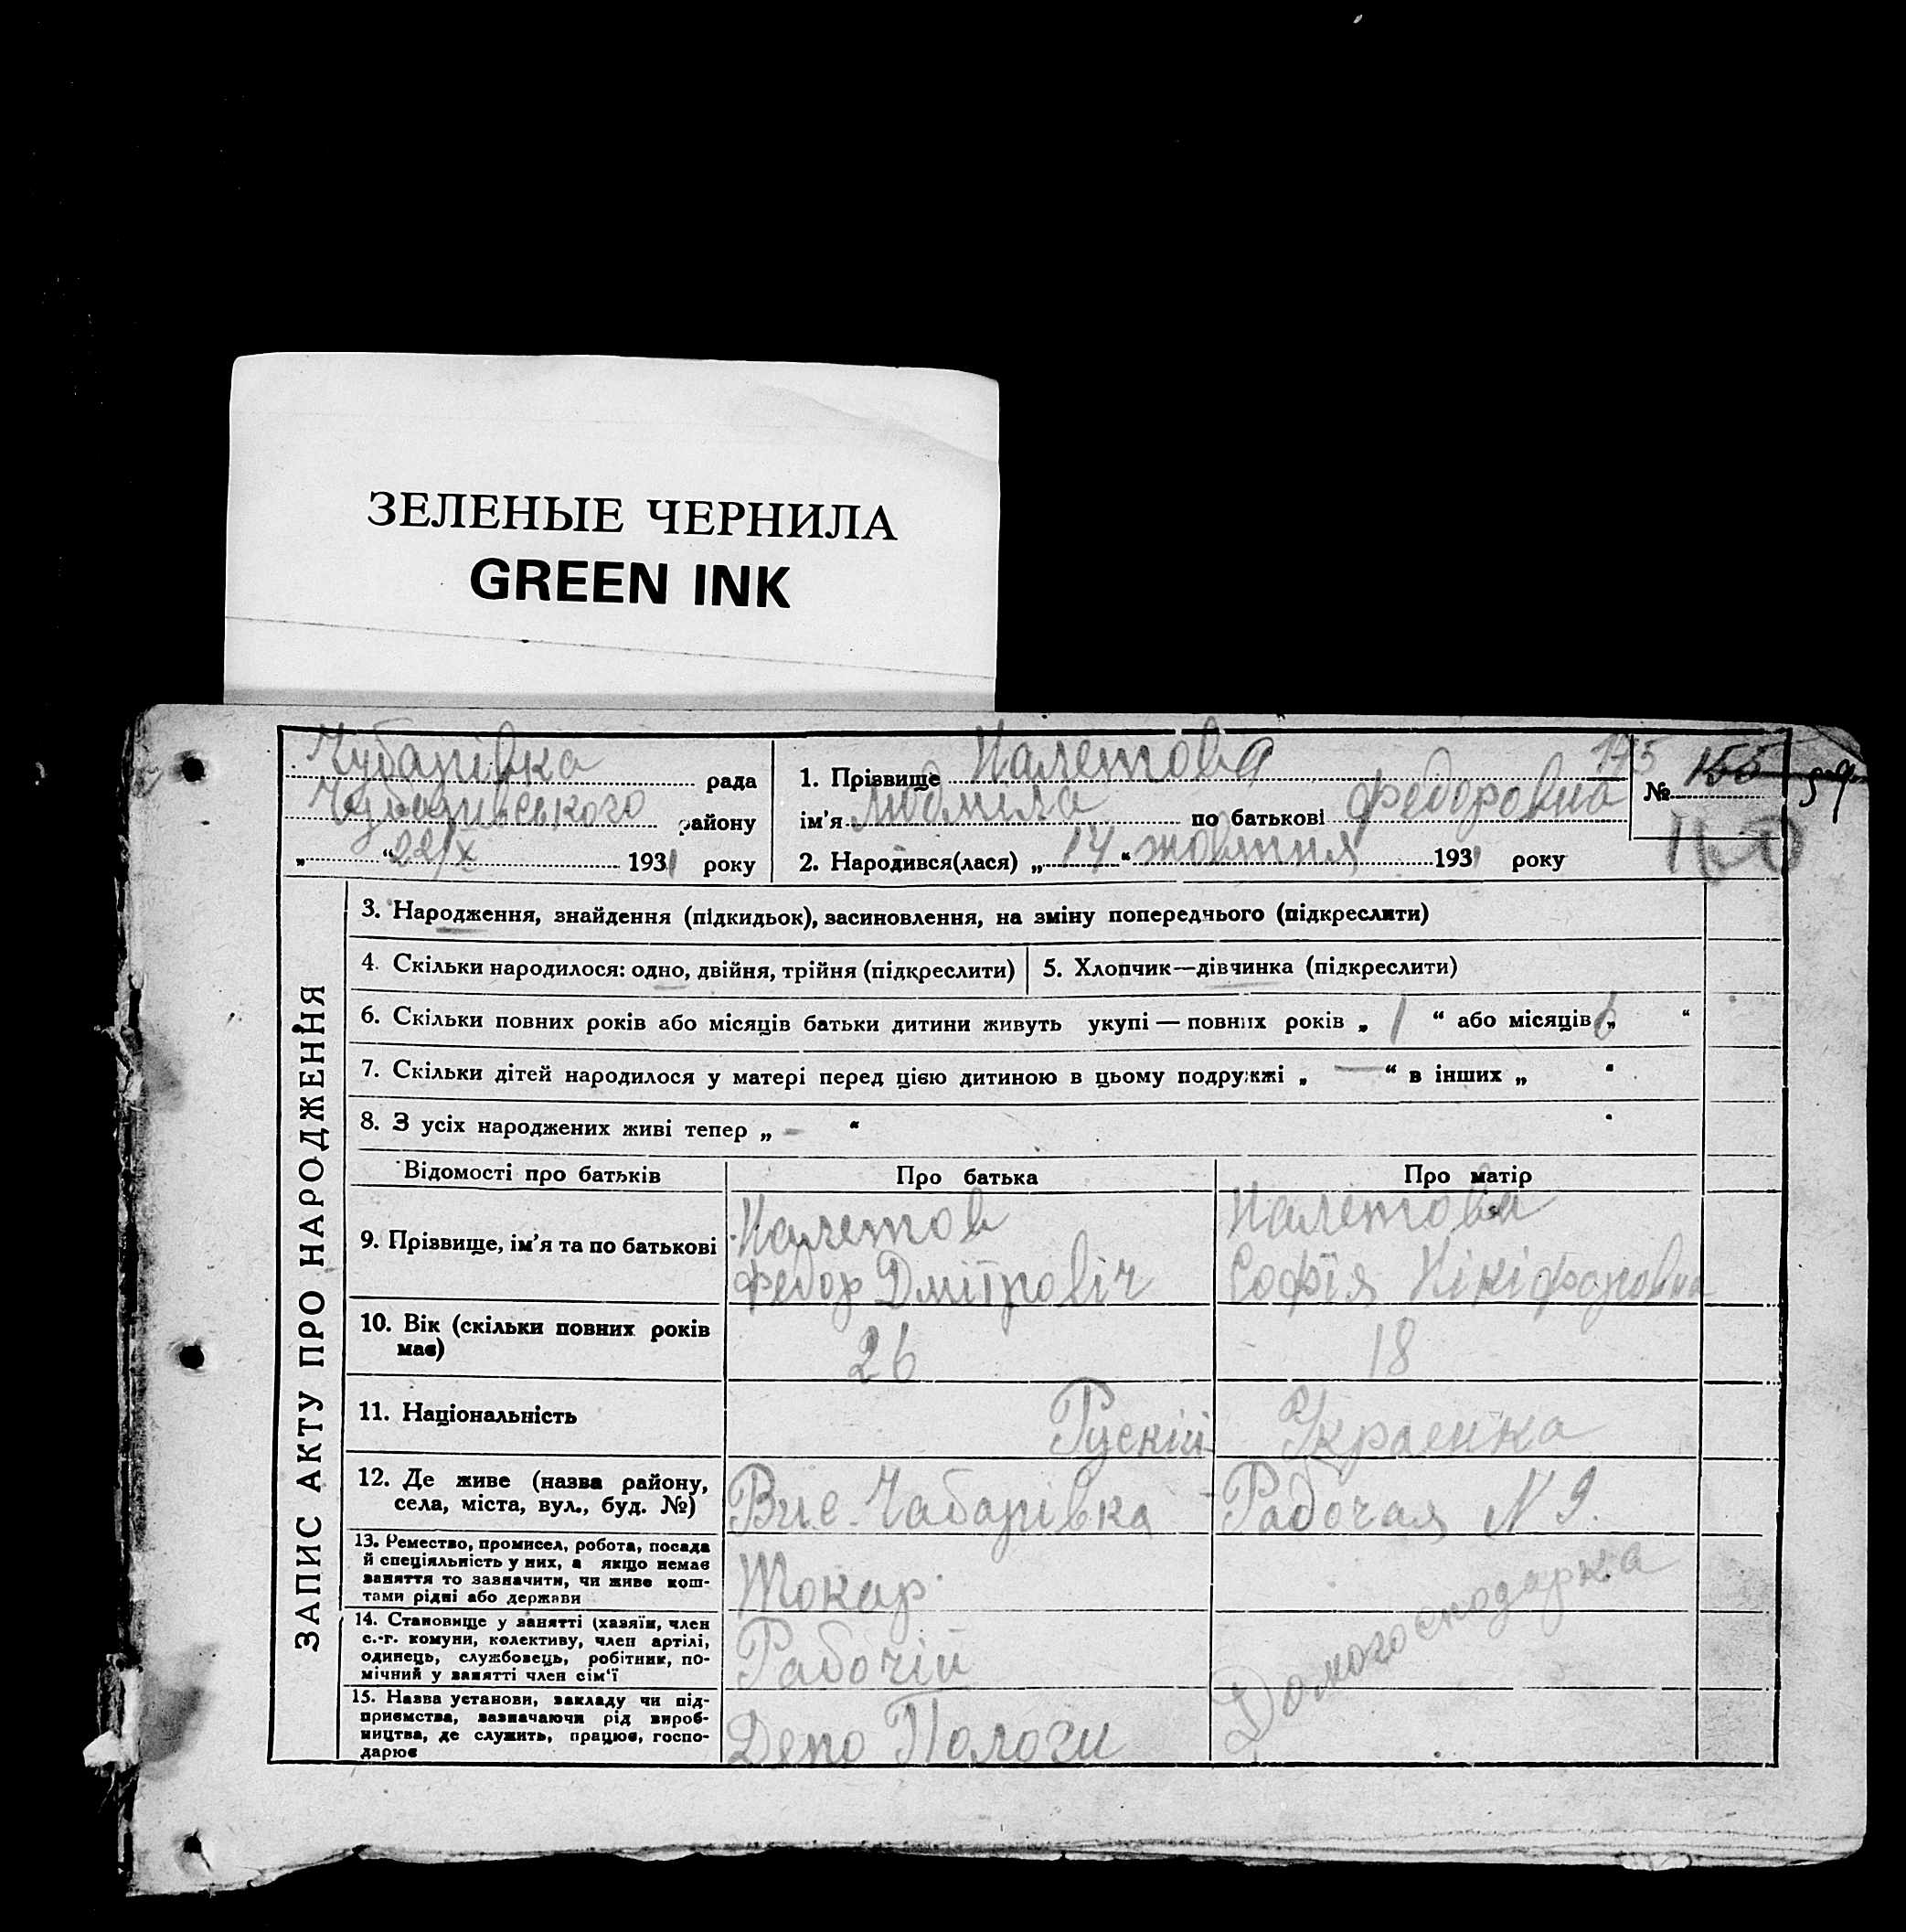 ЗЕЛЕНЫЕ ЧЕРНИЛА
GREEN INK
Чубарівка рада
Чубарівського району
„ “ 22/X 1931 року
1. Прізвище Налетова
ім’я Людміла по батькові Федоровна
2. Народівся(лася) „ 14 “ жовтня 1931 року
175
№ 155
59
ЗАПИС АКТУ ПРО НАРОДЖЕННЯ
3. Народження, знайдення (підкидьок), засиновлення, на зміну попереднього (підкреслити)
4. Скільки народилося: одно, двійня, трійня (підкреслити)
5. Хлопчик—дівчинка (підкреслити)
6. Скільки повних років або місяців батьки дитини живуть укупі — повних років „ 1 “ або місяців „ 6 “
7. Скільки дітей народилося у матері перед цією дитиною в цьому подружжі „ — “ в інших „ “
8. З усіх народжених живі тепер „ — “
Відомості про батьків
Про батька
Про матір
9. Прізвище, ім’я та по батькові
Налетов
Федор Дмітровіч
Налетова
Софія Нікіфоровна
10. Вік (скільки повних років
має)
26
18
11. Національність
Рускій
Украенка
12. Де живе (назва району,
села, міста, вул., буд. №)
Вис. Чабарівка
Рабочая N 9.
13. Ремество, промисел, робота, посада
й спеціяльність у них, а якщо немає
заняття то зазначити, чи живе кош-
тами рідні або держави
Токар
14. Становище у занятті (хазяїн, член
с.-г. комуни, колективу, член артілі,
одинець, службовець, робітник, по-
мічний у занятті член сім’ї
Рабочій
Домогосподарка
15. Назва установи, закладу чи під-
приємства, зазначаючи рід вироб-
ництва, де служить, працює, госпо-
дарює
Депо Пологи